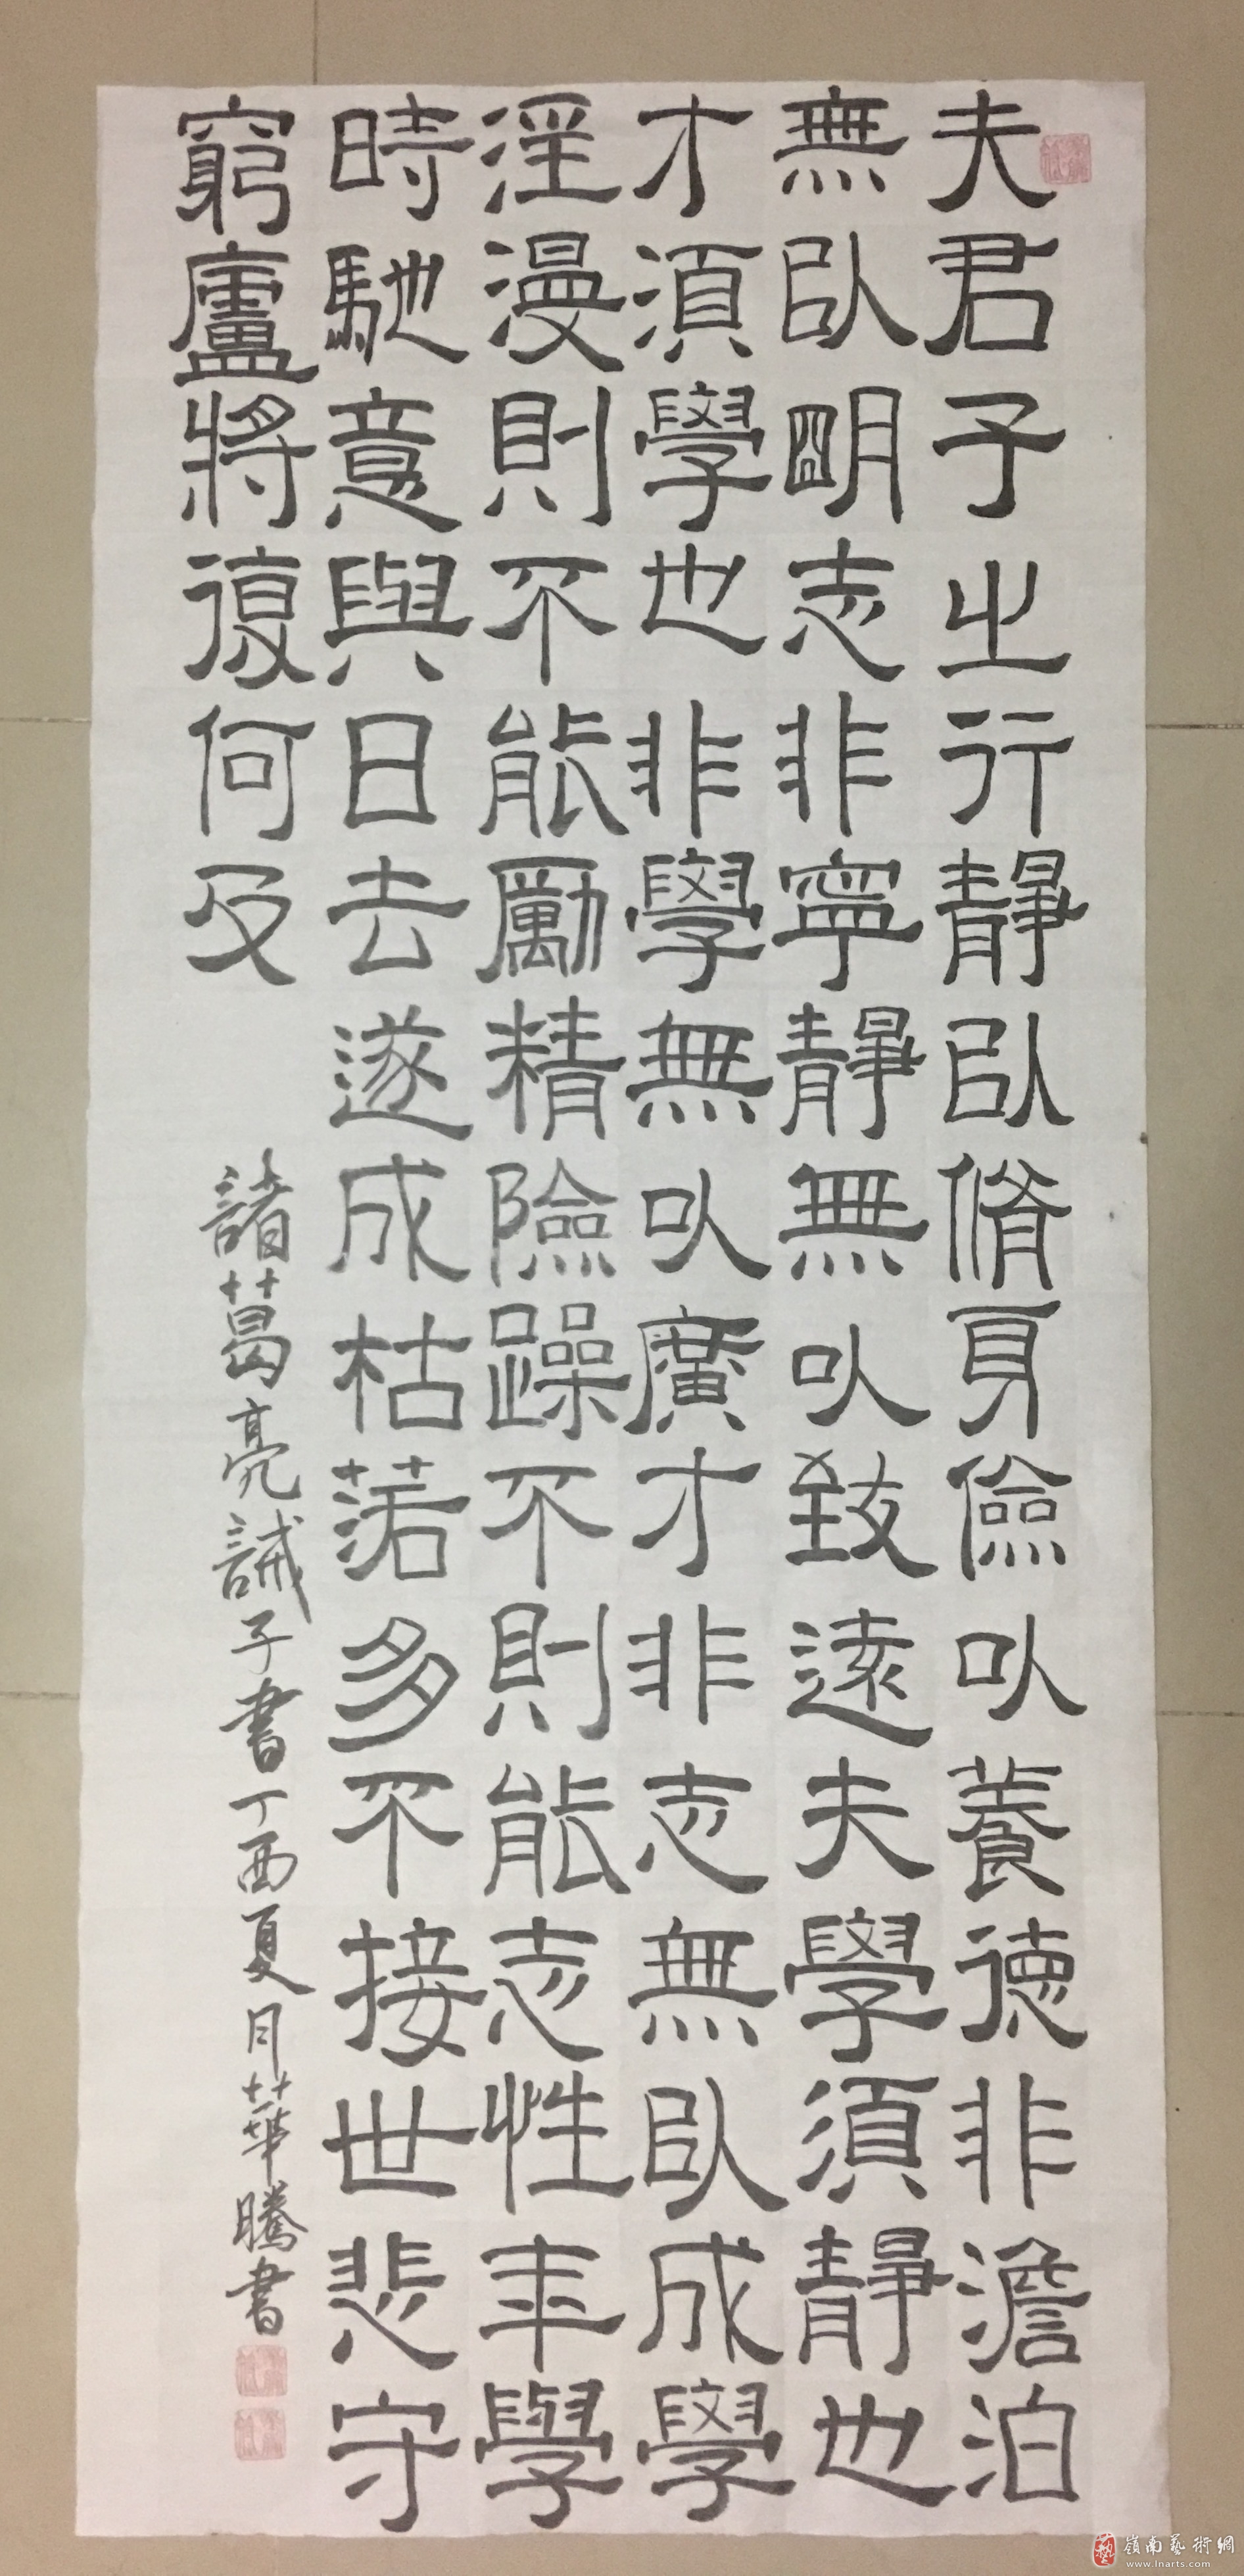 夫君子之行靜以脩身儉以養德非澹泊
無以明志非寧靜無以致遠夫學須靜也
才須學也非學無以廣才非志無以成學
淫漫則不能勵精險躁不則能志性年學
時馳意與日去遂成枯落多不接世悲守
窮廬將復何及
諸葛亮誡子書丁酉夏月華騰書
嶺南藝術網
www.lnarts.com